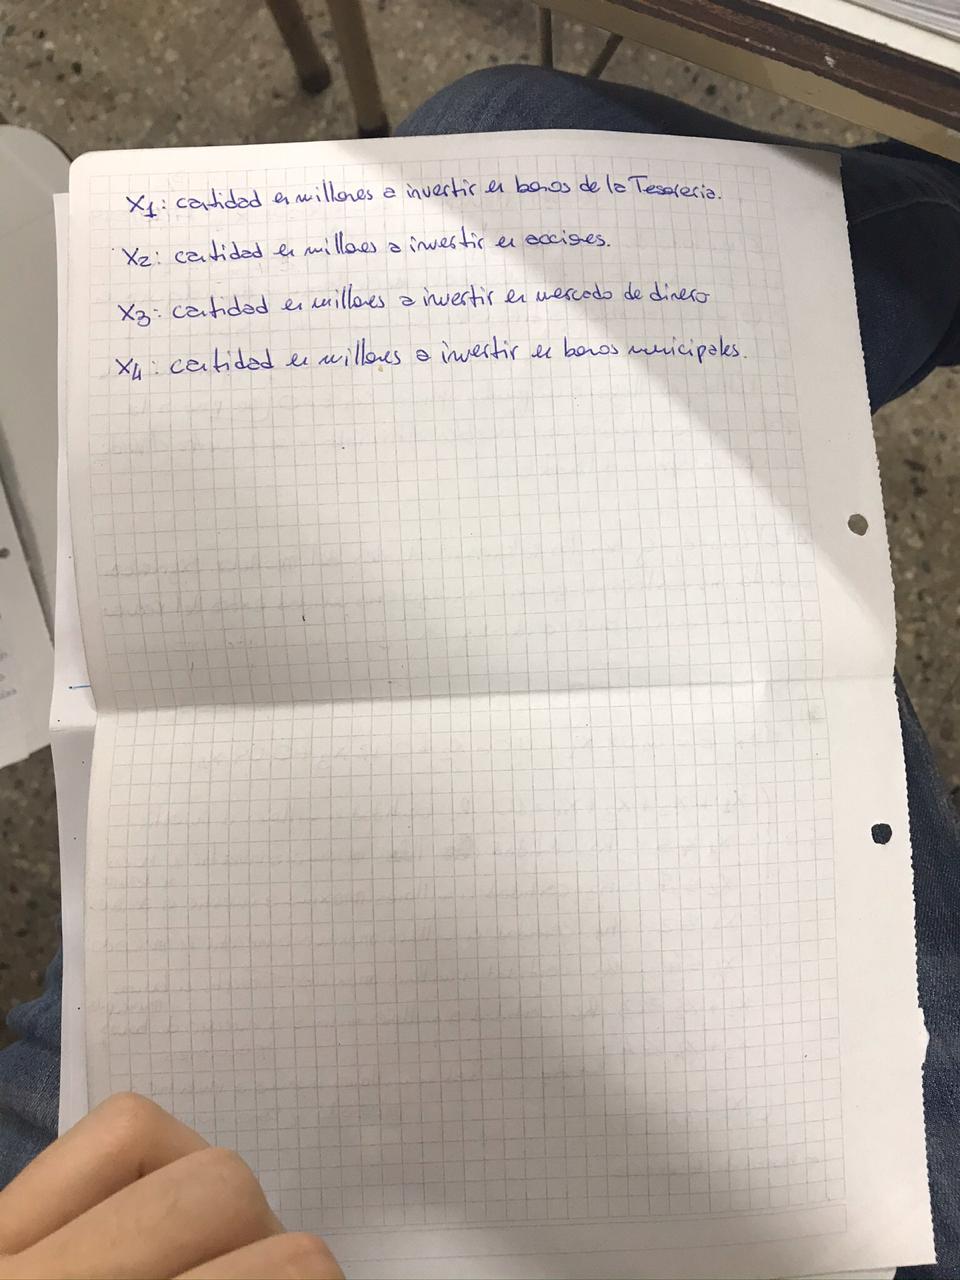 X1: cantidad en millones a invertir en bonos de la Tesorería.
X2: cantidad en millones a invertir en acciones.
X3: cantidad en millones a invertir en mercado de dinero
X4: cantidad en millones a invertir en bonos municipales.